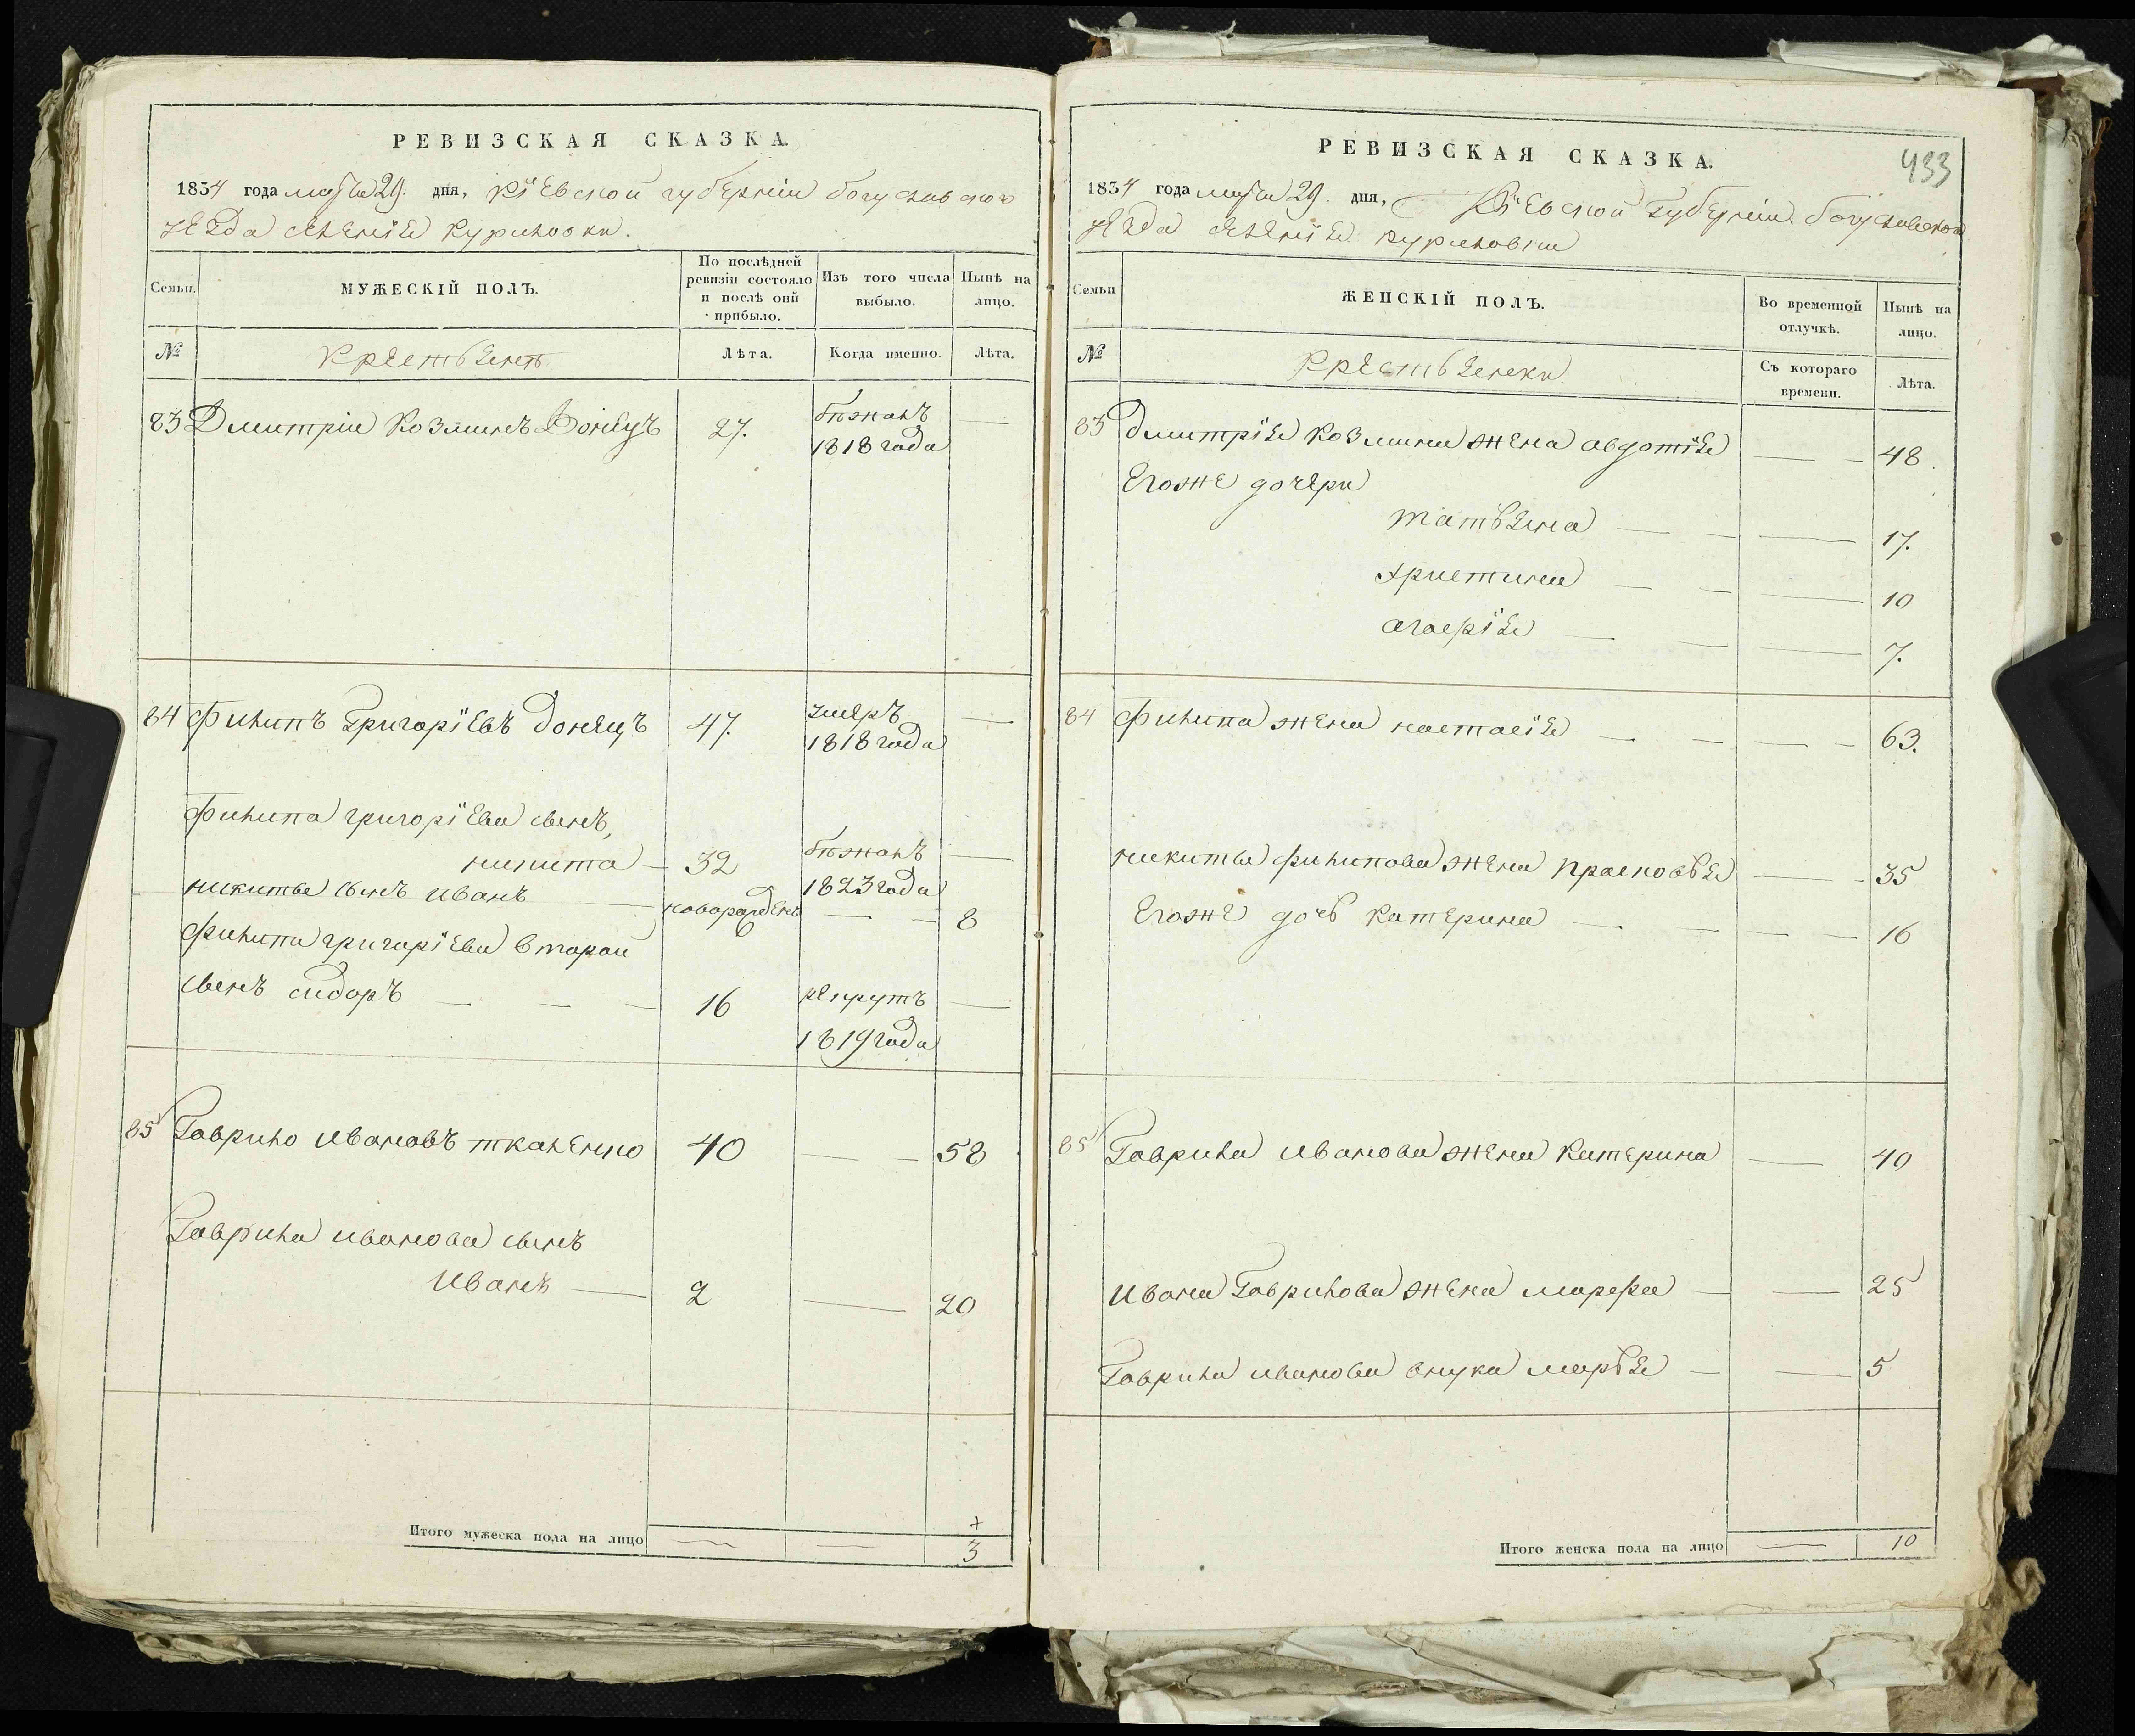 РЕВИЗСКАЯ СКАЗКА.
1834 года марта 29. дня, Кіевской губерніи богуславского
уезда селенія Куриловки.
Семьи.
МУЖЕСКІЙ ПОЛЪ.
По послѣдней ревизіи состояло и послѣ оной прибыло.
Изъ того числа выбыло.
Нынѣ на лицо.
№
Крестьянъ
Лѣта.
Когда именно.
Лѣта.
83 Дмитрій Козминъ Донецъ 27. бѣжалъ —
1818 года
84 Филипъ Григоріевъ донецъ 47. умеръ —
1818 года
Филипа григоріева сынъ,
никита — 32 бѣжалъ —
1823 года
никиты сынъ иванъ — новорожденъ — — 8
Филипа григоріева второй
сынъ сидоръ — — — 16 рекрутъ —
1819 года
85 Гаврило ивановъ ткаленко 40 — — 58
Гаврила иванова сынъ
иванъ — 2 — 20
+
Итого мужеска пола на лицо — — 3
433
РЕВИЗСКАЯ СКАЗКА.
1834 года марта 29. дня, Кіевской губерніи богуславского
уезда селенія куриловки
Семьи
ЖЕНСКІЙ ПОЛЪ.
Во временной отлучкѣ.
Нынѣ на лицо.
№
Крестьянки
Съ котораго времени.
Лѣта.
83 Дмитрія козмина жена авдотія — — 48.
Егоже дочери
татьяна — — — 17.
христина — — — 10
агафія — — — 7.
84 Филипа жена настасія — — — — 63.
никиты филипова жена прасковья — — 35
Егоже дочь катерина — — — — 16
85 Гаврила иванова жена катерина — 40
ивана Гаврилова жена марфа — — 25
Гаврила иванова внука марья — — 5
Итого женска пола на лицо — 10